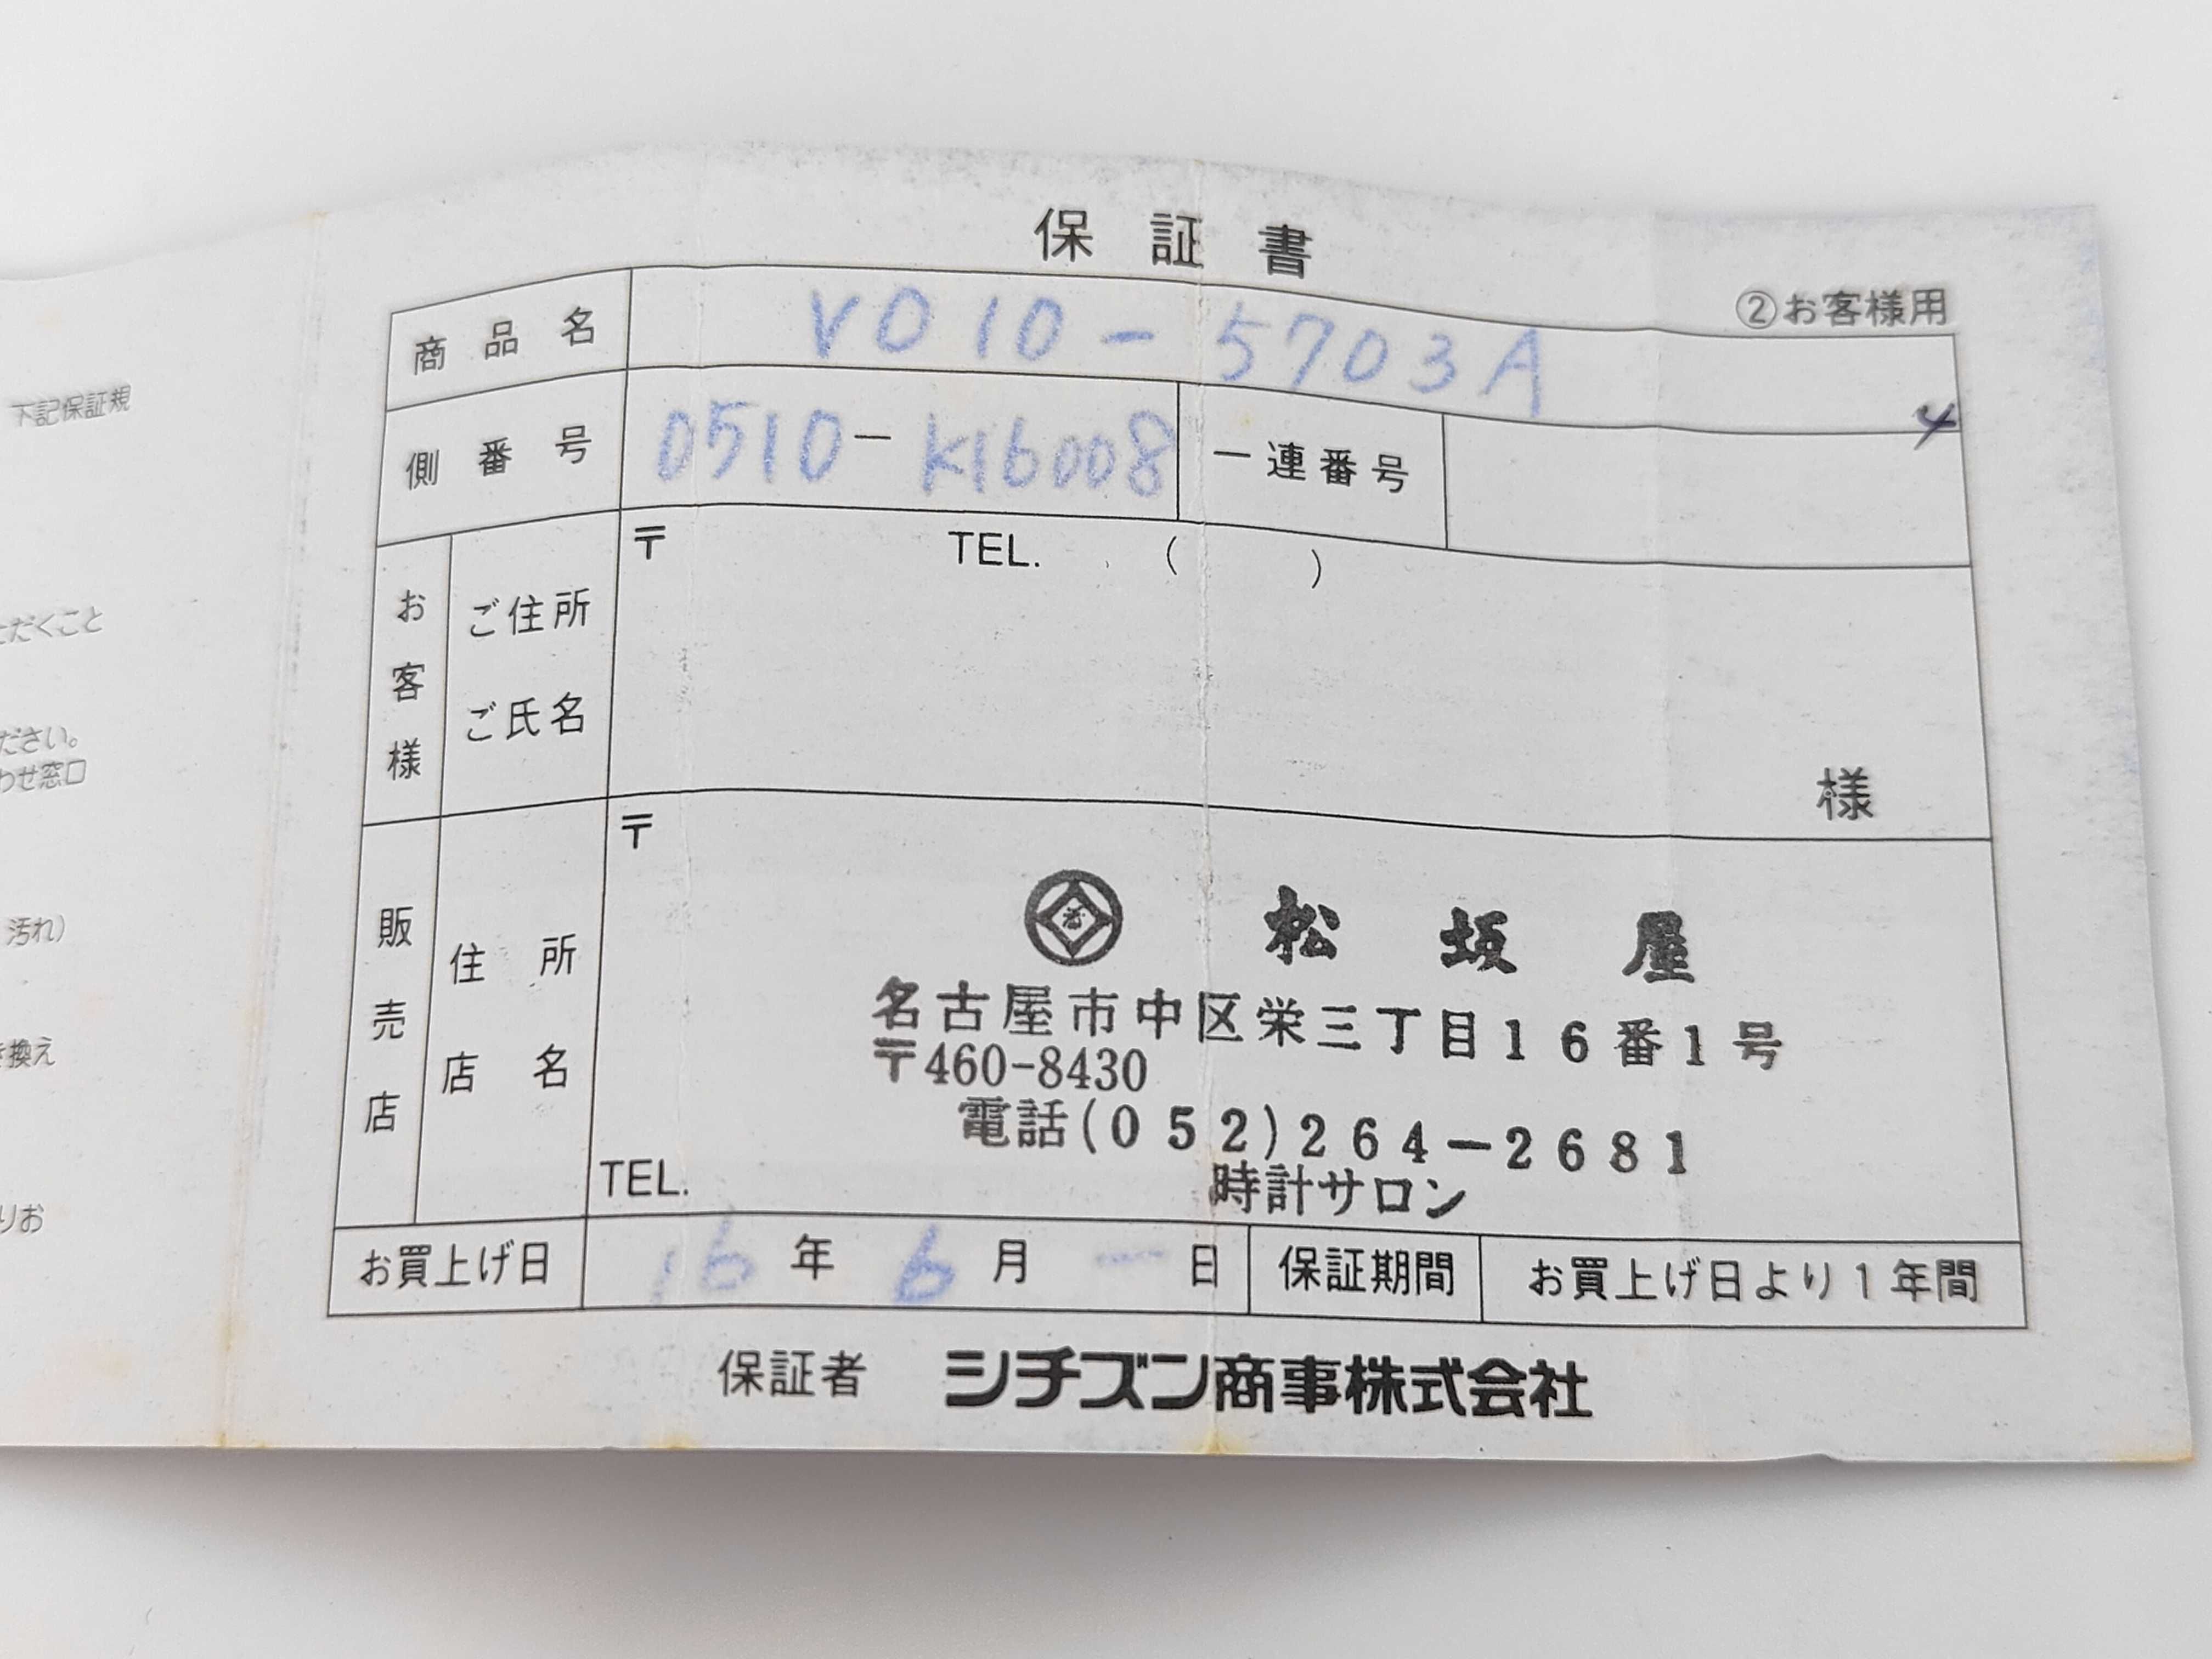 保証書
②お客様用
商品名 V010-5703A
4
側番号 0510-K16008 一連番号
お客様 ご住所 ご氏名 〒 TEL. ( )
様
販売店 住所 店名 〒
松坂屋
名古屋市中区栄三丁目16番1号
〒460-8430
電話(052)264-2681
TEL.
時計サロン
お買上げ日 16年 6月 一日 保証期間 お買上げ日より1年間
保証者 シチズン商事株式会社
下記保証規
ただくこと
ださい。
わせ窓口
汚れ)
換え
りお